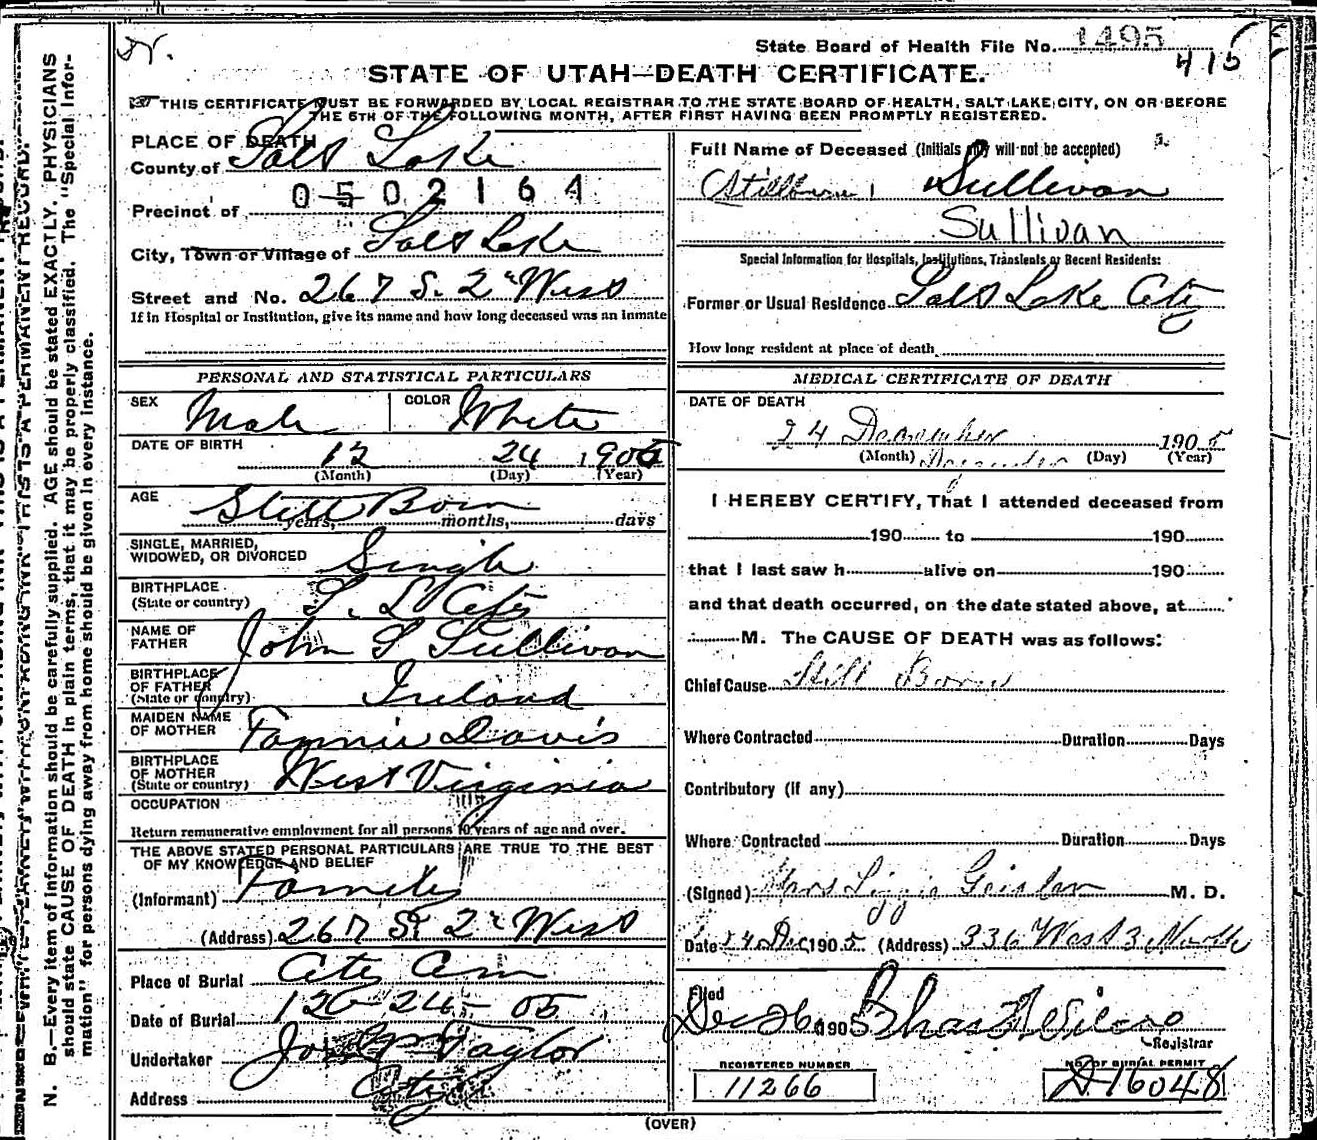 State Board of Health File No. 1495
415
STATE OF UTAH—DEATH CERTIFICATE.
THIS CERTIFICATE MUST BE FORWARDED BY LOCAL REGISTRAR TO THE STATE BOARD OF HEALTH, SALT LAKE CITY, ON OR BEFORE
THE 5TH OF THE FOLLOWING MONTH, AFTER FIRST HAVING BEEN PROMPTLY REGISTERED.
PLACE OF DEATH
County of Salt Lake
0502164
Precinct of
City, Town or Village of Salt Lake
Street and No. 267 S. 2" West
If in Hospital or Institution, give its name and how long deceased was an inmate
PERSONAL AND STATISTICAL PARTICULARS
SEX Male COLOR White
DATE OF BIRTH 12 24 1905
(Month) (Day) (Year)
AGE Still Born
years, months, days
SINGLE, MARRIED,
WIDOWED, OR DIVORCED Single
BIRTHPLACE
(State or country) S. L City
NAME OF
FATHER John S Sullivan
BIRTHPLACE
OF FATHER
(State or country) Ireland
MAIDEN NAME
OF MOTHER Fannie Davis
BIRTHPLACE
OF MOTHER
(State or country) West Virginia
OCCUPATION
Return remunerative employment for all persons 10 years of age and over.
THE ABOVE STATED PERSONAL PARTICULARS ARE TRUE TO THE BEST
OF MY KNOWLEDGE AND BELIEF
(Informant) Family
(Address) 267 S 2" West
Place of Burial City Cem
Date of Burial 12-24-05
Undertaker Taylor
Address City
Full Name of Deceased (Initials only will not be accepted)
(Stillborn) Sullivan
Sullivan
Special Information for Hospitals, Institutions, Transients or Recent Residents:
Former or Usual Residence Salt Lake City
How long resident at place of death
MEDICAL CERTIFICATE OF DEATH
DATE OF DEATH
24 December 1905
(Month) December (Day) (Year)
I HEREBY CERTIFY, That I attended deceased from
190 to 190
that I last saw h alive on 190
and that death occurred, on the date stated above, at
M. The CAUSE OF DEATH was as follows:
Chief Cause Still Born
Where Contracted Duration Days
Contributory (if any)
Where Contracted Duration Days
(Signed) M. D.
Date 24 Dec 1905 (Address) 336 West 3 North
Filed
Dec 26 1905
Registrar
REGISTERED NUMBER
11266
NO. OF BURIAL PERMIT
D 16048
(OVER)
N. B.—Every item of information should be carefully supplied. AGE should be stated EXACTLY. PHYSICIANS
should state CAUSE OF DEATH in plain terms, that it may be properly classified. The "Special Infor-
mation" for persons dying away from home should be given in every instance.